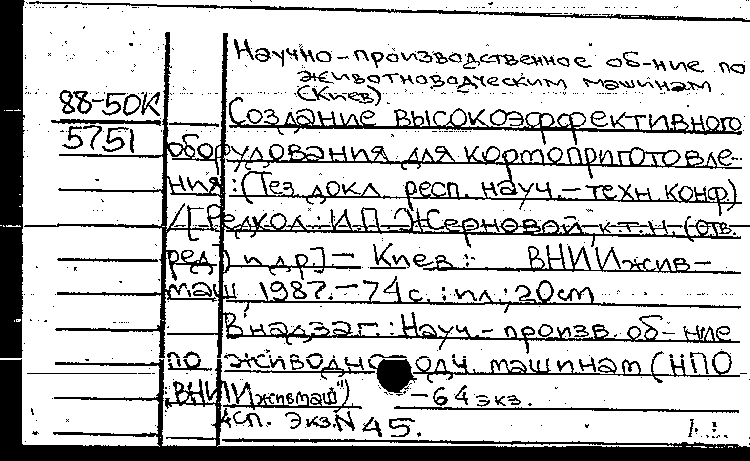 Научно-производственное об-ние по
животноводческим машинам
(Киев)
88-50К
5751
Создание высокоэффективного
оборудования для кормоприготовле-
ния: (Тез. докл. респ. науч.-техн. конф)
/[Редкол.: И.П. Жерновой, к.т.н. (отв.
ред.) и др.] - Киев: ВНИИжив-
маш, 1987. - 74 с.: ил.; 20 см
В надзаг.: Науч.-произв. об-ние
по машинам (НПО
"ВНИИживмаш") - 64 экз.
Исп. Экз.N 45.